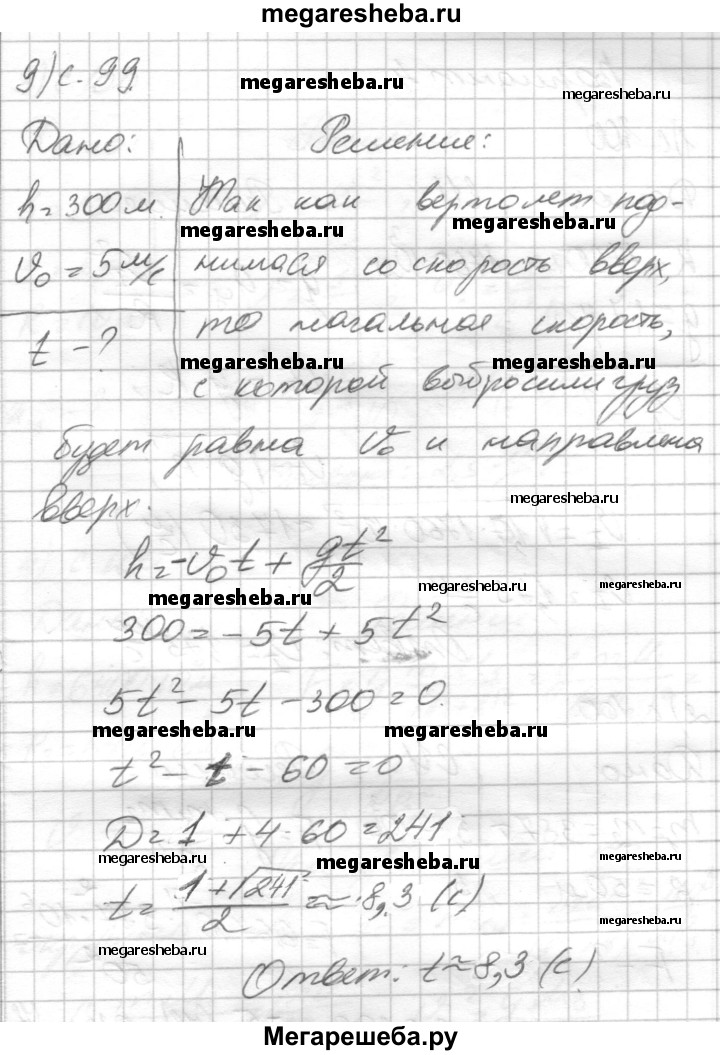 megaresheba.ru
9) с. 99.
megaresheba.ru
megaresheba.ru
Дано: Решение:
h = 300 м. Так как вертолет под-
megaresheba.ru megaresheba.ru
v₀ = 5 м/с нимася со скорость вверх,
t - ? то начальная скорость,
megaresheba.ru megaresheba.ru
с которой выбросили груз
будет равна v₀ и направлена
вверх.
megaresheba.ru
h = -v₀t + gt²/2
megaresheba.ru megaresheba.ru
300 = -5t + 5t²
5t² - 5t - 300 = 0.
megaresheba.ru megaresheba.ru
t² - t - 60 = 0
D = 1 + 4·60 = 241
megaresheba.ru megaresheba.ru megaresheba.ru
t = (1 + √241)/2 ≈ 8,3 (с)
megaresheba.ru
megaresheba.ru
Ответ: t ≈ 8,3 (с)
Мегарешеба.ру